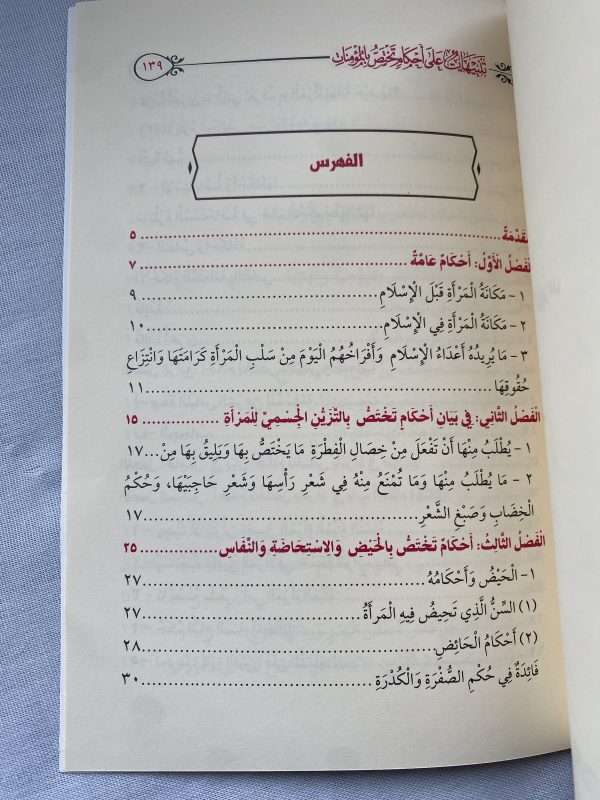 ١٣٩ تَنْبِيهَاتٌ عَلَى أَحْكَامٍ تَخْتَصُّ بِالْمُؤْمِنَاتِ
الفهرس
مُقَدِّمَةٌ ٥
الفَصْلُ الْأَوَّلُ: أَحْكَامٌ عَامَّةٌ ٧
١- مَكَانَةُ الْمَرْأَةِ قَبْلَ الْإِسْلَامِ ٩
٢- مَكَانَةُ الْمَرْأَةِ فِي الْإِسْلَامِ ١٠
٣- مَا يُرِيدُهُ أَعْدَاءُ الْإِسْلَامِ وَأَفْرَاخُهُمُ الْيَوْمَ مِنْ سَلْبِ الْمَرْأَةِ كَرَامَتَهَا وَانْتِزَاعِ
حُقُوقِهَا ١١
الفَصْلُ الثَّانِي: فِي بَيَانِ أَحْكَامٍ تَخْتَصُّ بِالتَّزَيُّنِ الْجِسْمِيِّ لِلْمَرْأَةِ ١٥
١- يُطْلَبُ مِنْهَا أَنْ تَفْعَلَ مِنْ خِصَالِ الْفِطْرَةِ مَا يَخْتَصُّ بِهَا وَيَلِيقُ بِهَا مِنْ... ١٧
٢- مَا يُطْلَبُ مِنْهَا وَمَا تُمْنَعُ مِنْهُ فِي شَعْرِ رَأْسِهَا وَشَعْرِ حَاجِبَيْهَا، وَحُكْمُ
الْخِضَابِ وَصَبْغِ الشَّعْرِ ١٧
الْفَصْلُ الثَّالِثُ: أَحْكَامٌ تَخْتَصُّ بِالْحَيْضِ وَالِاسْتِحَاضَةِ وَالنِّفَاسِ ٢٥
١- الْحَيْضُ وَأَحْكَامُهُ ٢٧
(١) السِّنُّ الَّذِي تَحِيضُ فِيهِ الْمَرْأَةُ ٢٧
(٢) أَحْكَامُ الْحَائِضِ ٢٨
فَائِدَةٌ فِي حُكْمِ الصُّفْرَةِ وَالْكُدْرَةِ ٣٠